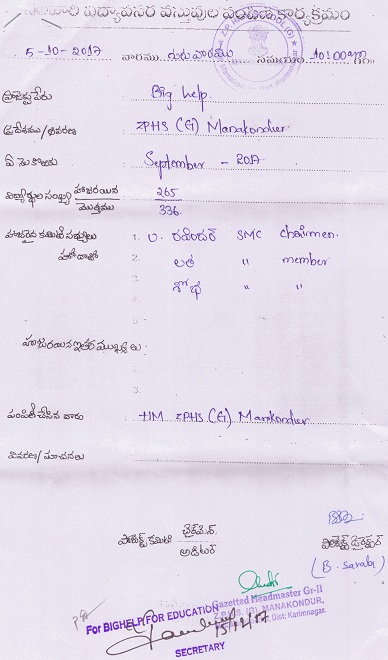 విద్యావసర వస్తువుల పంపిణి కార్యక్రమం
5-10-2017 వారము గురువారము సమయం 10:00
ప్రాజెక్టు పేరు Big help.
ప్రదేశము/వివరణ ZPHS (G) Manakondur.
ఏ నెల కొరకు September - 2017
విద్యార్థుల సంఖ్య హాజరయిన 265
మొత్తము 336
హాజరైన కమిటి సభ్యులు 1. U. రవిందర్ SMC chairmen.
హోదాతో 2. లత " member
3. శోభ " "
4.
5.
హాజరయిన ఇతర ముఖ్యులు 1.
2.
3.
పంపిణి చేసిన వారు HM ZPHS (G) Manakondur
వివరణ/సూచనలు
చైర్మెన్
ప్రాజెక్ట్ కమిటి
ఆడిటర్
ప్రాజెక్ట్ డైరెక్టర్
(B. Sarala)
Gazetted Headmaster Gr-II
Z.P.H.S. (G) MANAKONDUR,
Dist: Karimnagar.
For BIGHELP FOR EDUCATION
15/12/17
SECRETARY